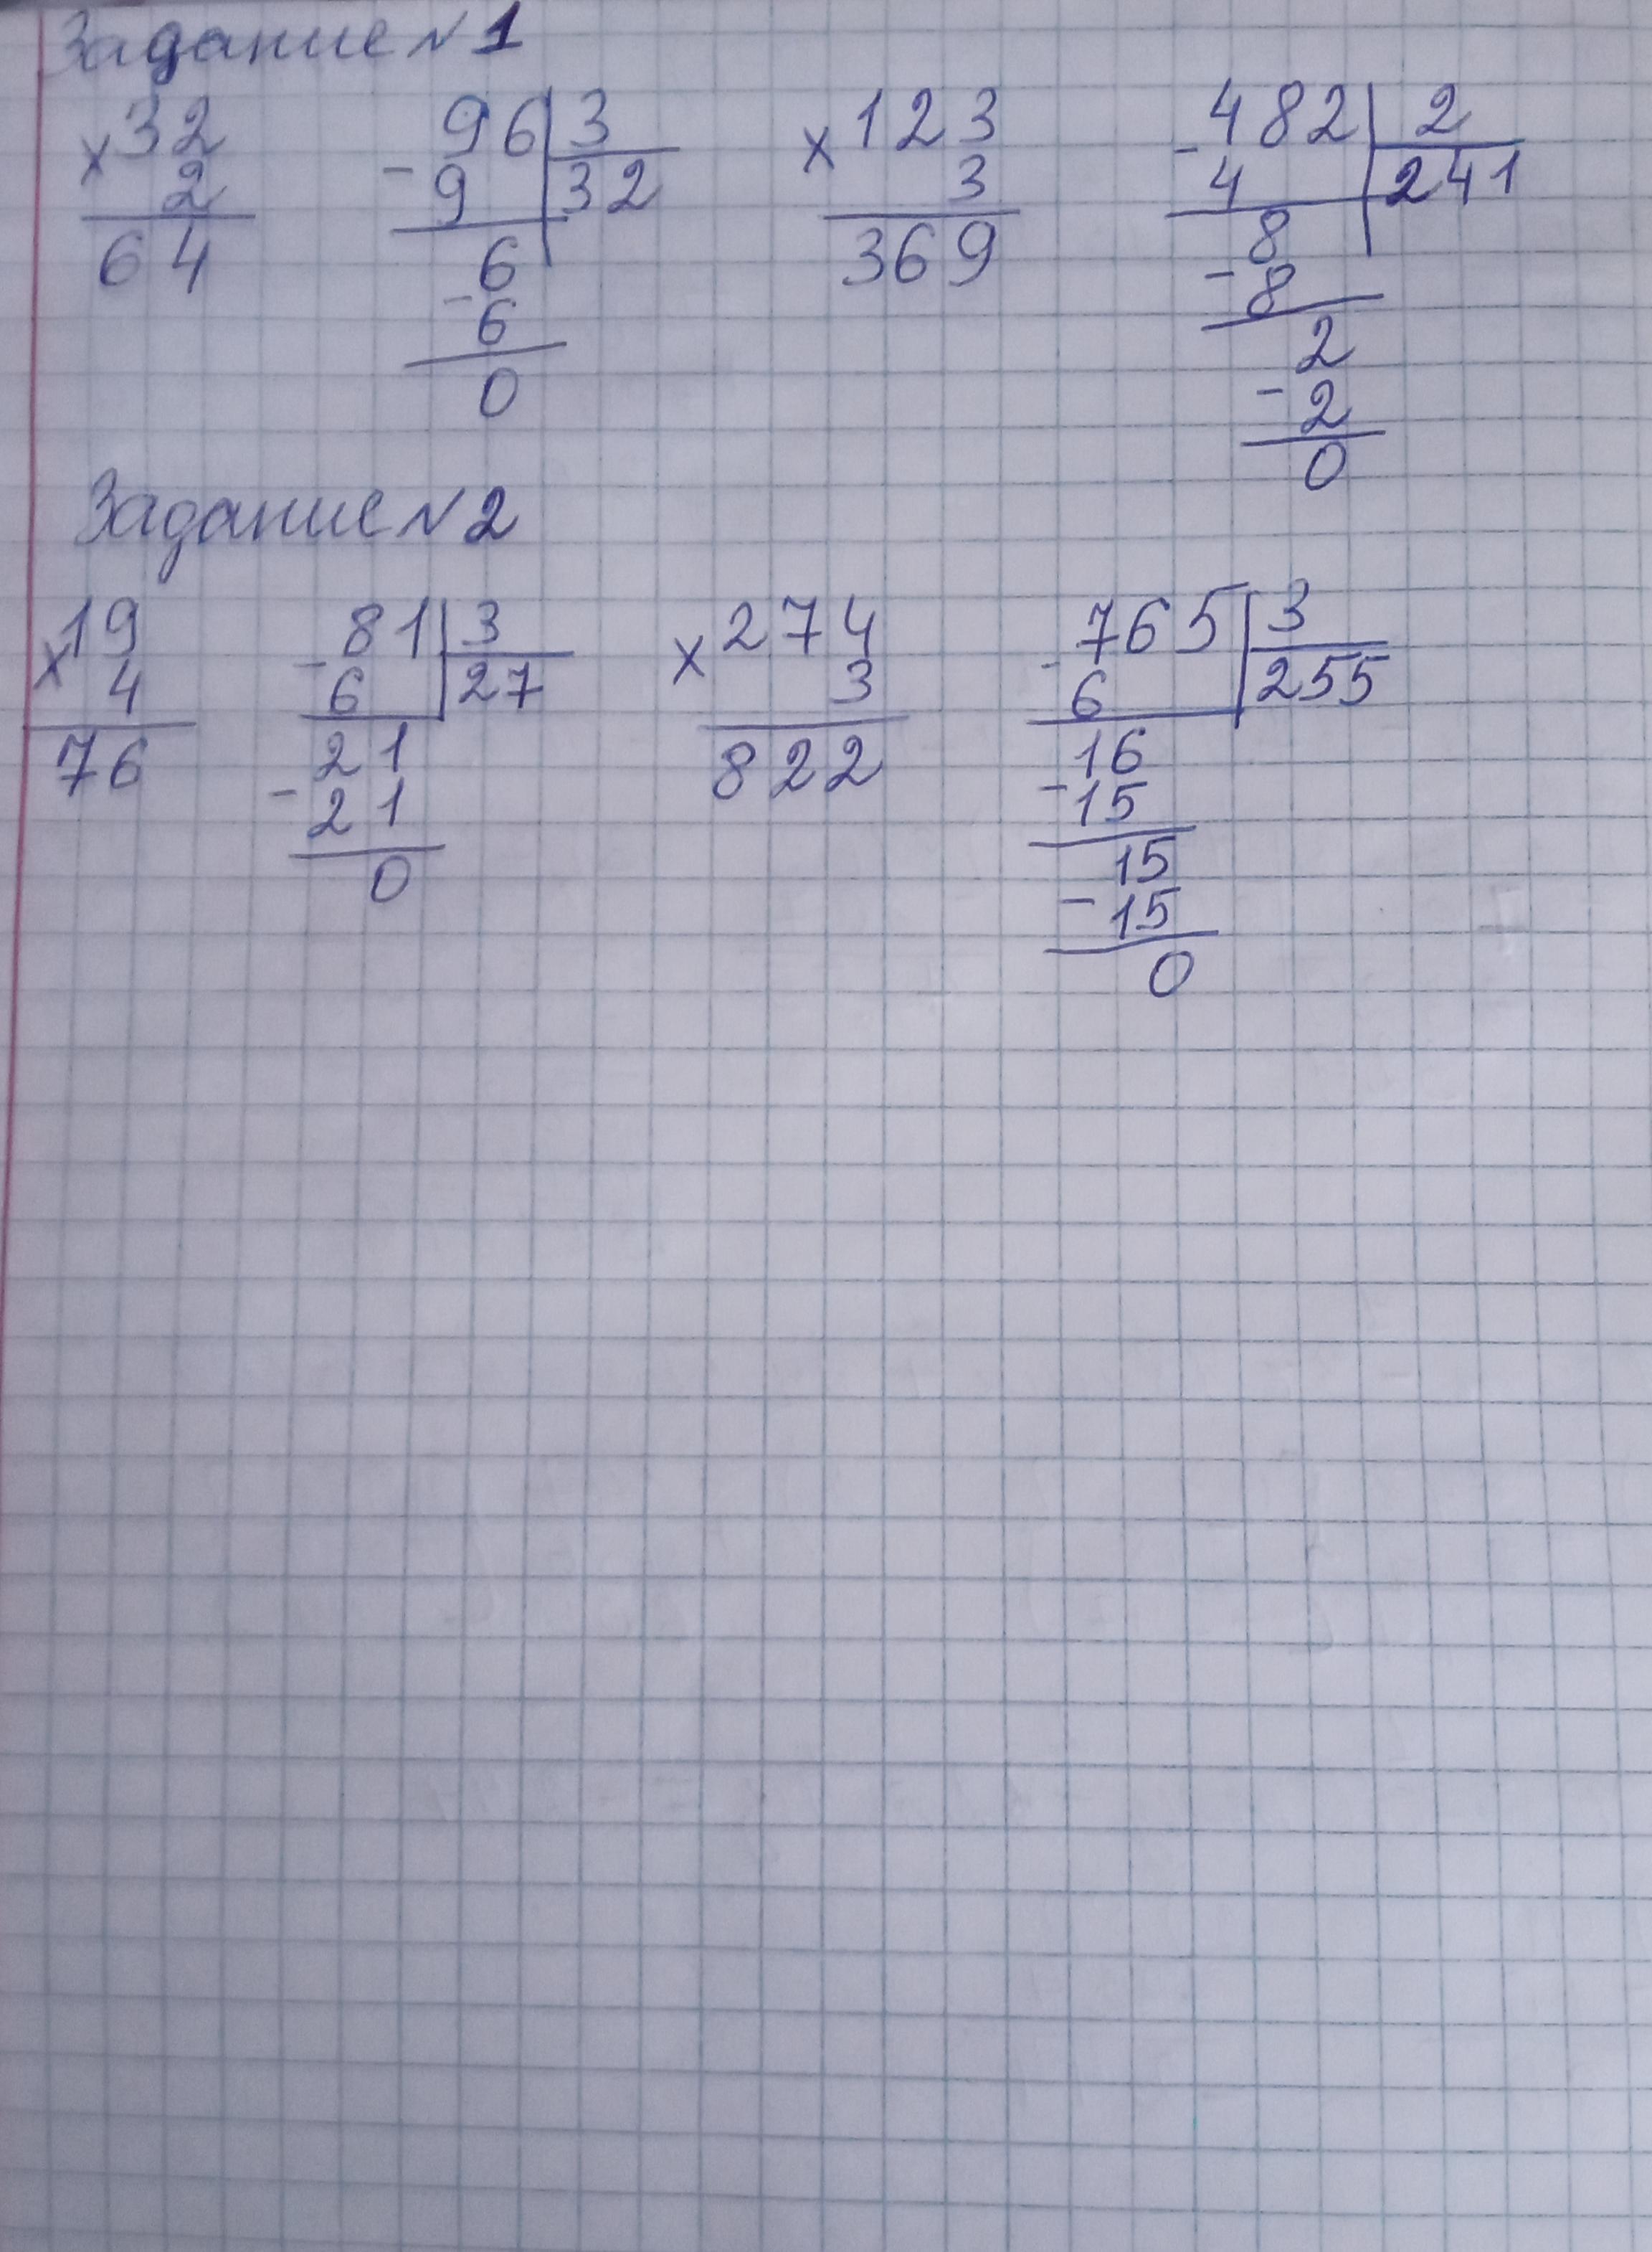 Задание №1
×32 -96|3 ×123 -482|2
2 9 32 3 4 241
64 6 369 8
-6 -8
0 2
-2
0
Задание №2
×19 -81|3 ×274 -765|3
4 6 27 3 6 255
76 21 822 16
-21 -15
0 15
-15
0